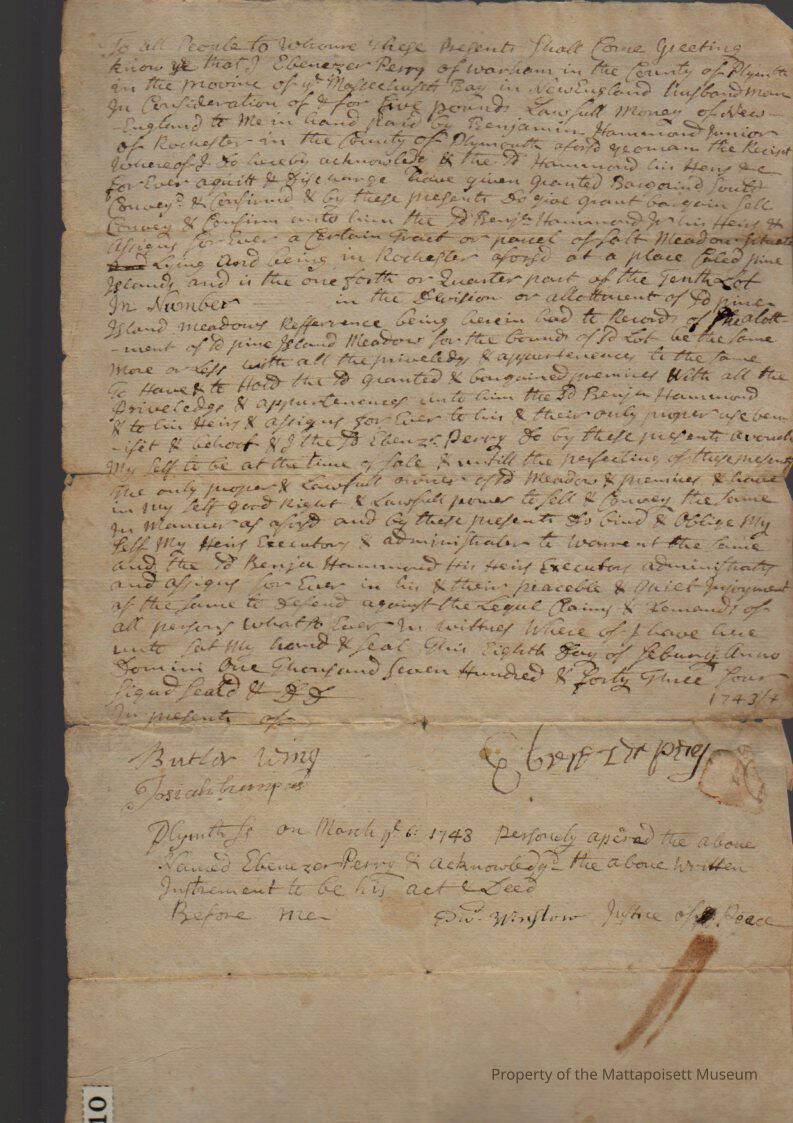 To all People to whome these Presents Shall Come Greeting
Know ye that I Ebenezer Perry of warham in the County of Plymth
in the province of ye Massechusett Bay in NewEngland husbandman
In Consideration of & for five pounds Lawfull Money of New-
-England to Me in hand paid by Benjamin Hammond Junior
of Rochester in the County of Plymouth aforsd yeoman the Receipt
whereof I Do hereby acknowledg & the sd Hammond his Heirs &c
for Ever aquitt & Discharge have given granted Bargaind Sould
Convey.d & Confirmd & by these presents Do give grant bargain Sell
Convey & Confirm unto him the sd Benja Hammond Jr his Heirs &
assigns for Ever a Certain Tract or parcel of salt Meadow situate
Lying and being in Rochester aforsd at a place Caled pine
Islands and is the one forth or Quarter part of the Tenth Lot
In Number in the Division or allottment of sd pine
Island meadows Refferrence being herein had to Records of the alott
-ment of sd pine Island Meadow for the bounds of sd Lot be the same
more or Less with all the priveledgs & appurtenences to the same
To Have & to Hold the sd granted & bargained premises with all the
Priveledgs & appurtenences unto him the sd Benja Hammond
& to his Heirs & assigns for Ever to his & their only proper use ben-
-ifet & behoof & I the sd Ebenzr Perry Do by these presents avouch
My Self to be at the time of Sale & untill the perfecting of these presents
the only proper & Lawfull owner of sd Meadow & premises & have
in my self good Right & Lawfull power to sell & Convey the same
in Manner as aforsd and by these presents Do bind & Oblige My
Self My Heirs Executors & administrators to warrent the same
and the sd Benja Hammond His Heirs Executors administrators
and assigns for Ever in his & their peaceble & Quiet Injoyment
of the same to defend against the Legul Claims & Demands of
all persons whatso Ever In wittnes Where of I have here
unto sat My hand & seal This Eighth Day of feburey Anno
Domini One Thousand Seven Hundred & forty Three four
1743/4
Signd Seald & DD
In presents of
Butler Wing
Ebenezer perey
Plymth Ss on March ye 6: 1743 Personly apered the above
Named Ebenezer Perry & acknowledgd the above written
Instrement to be his act & Deed
Before Me Edwd Winslow Justice of Peace
10
Property of the Mattapoisett Museum